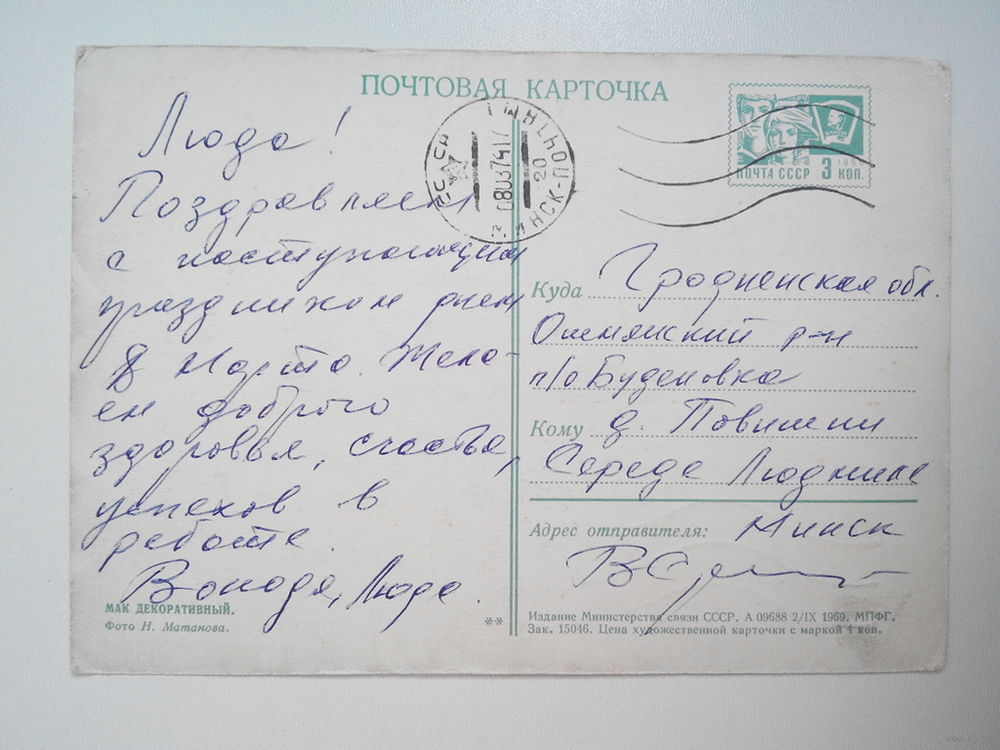 ПОЧТОВАЯ КАРТОЧКА
Люда!
Поздравляем
с наступающим
праздником днем
8 Марта. Жела-
ем доброго
здоровья, счастья,
успехов в
работе.
Володя, Люда.
МАК ДЕКОРАТИВНЫЙ.
Фото Н. Матанова.
**
МИНСК-ПОЧТАМТ
БССР
20
ПОЧТА СССР 3 КОП.
1966
ВЛКСМ
Куда Гродненская обл.
Ошмянский р-н
п/о Буденовка
Кому д. Повишни
Середе Людмиле
Адрес отправителя: Минск
Издание Министерства связи СССР. А 09688 2/IX 1969. МПФГ.
Зак. 15046. Цена художественной карточки с маркой 4 коп.